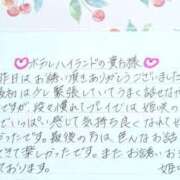 ♥ホテルハイランドの貴方様♥
昨日はお誘い頂きありがとうございました
最初は少し緊張していてうまく話せなか
ですが、段々慣れてプレイでは、姫咲の
でいっぱい感じて気持ち良くなれて
ったです。最後の方は、色んなお話
できて楽しかったです。またお誘いお
ております。